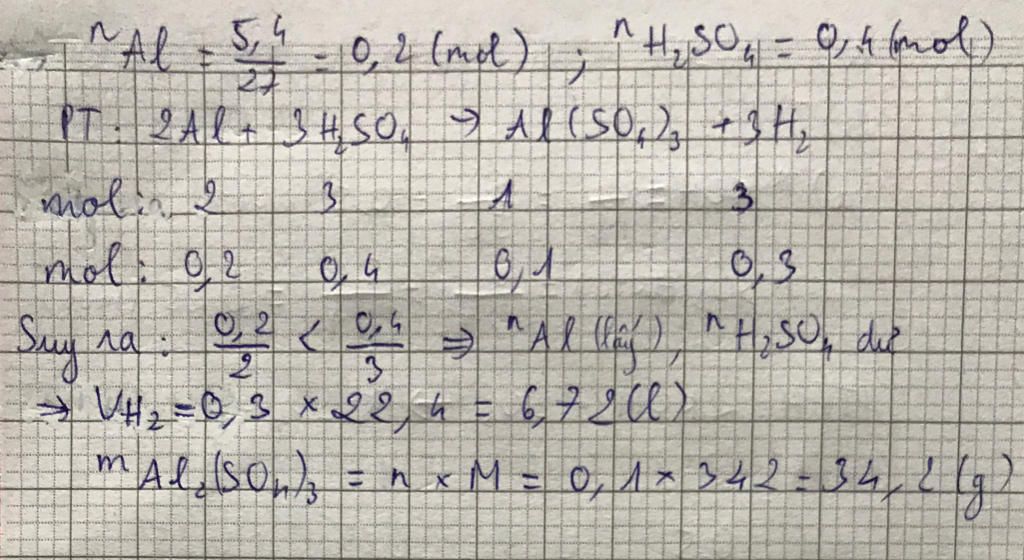 nAl = 5,4/27 = 0,2 (mol) ; nH₂SO₄ = 0,4 (mol)
PT: 2Al + 3H₂SO₄ → Al(SO₄)₃ + 3H₂
mol: 2 3 1 3
mol: 0,2 0,4 0,1 0,3
Suy ra: 0,2/2 < 0,4/3 ⇒ nAl (lấy), nH₂SO₄ dư
⇒ VH₂ = 0,3 × 22,4 = 6,72 (l)
mAl₂(SO₄)₃ = n × M = 0,1 × 342 = 34,2 (g)